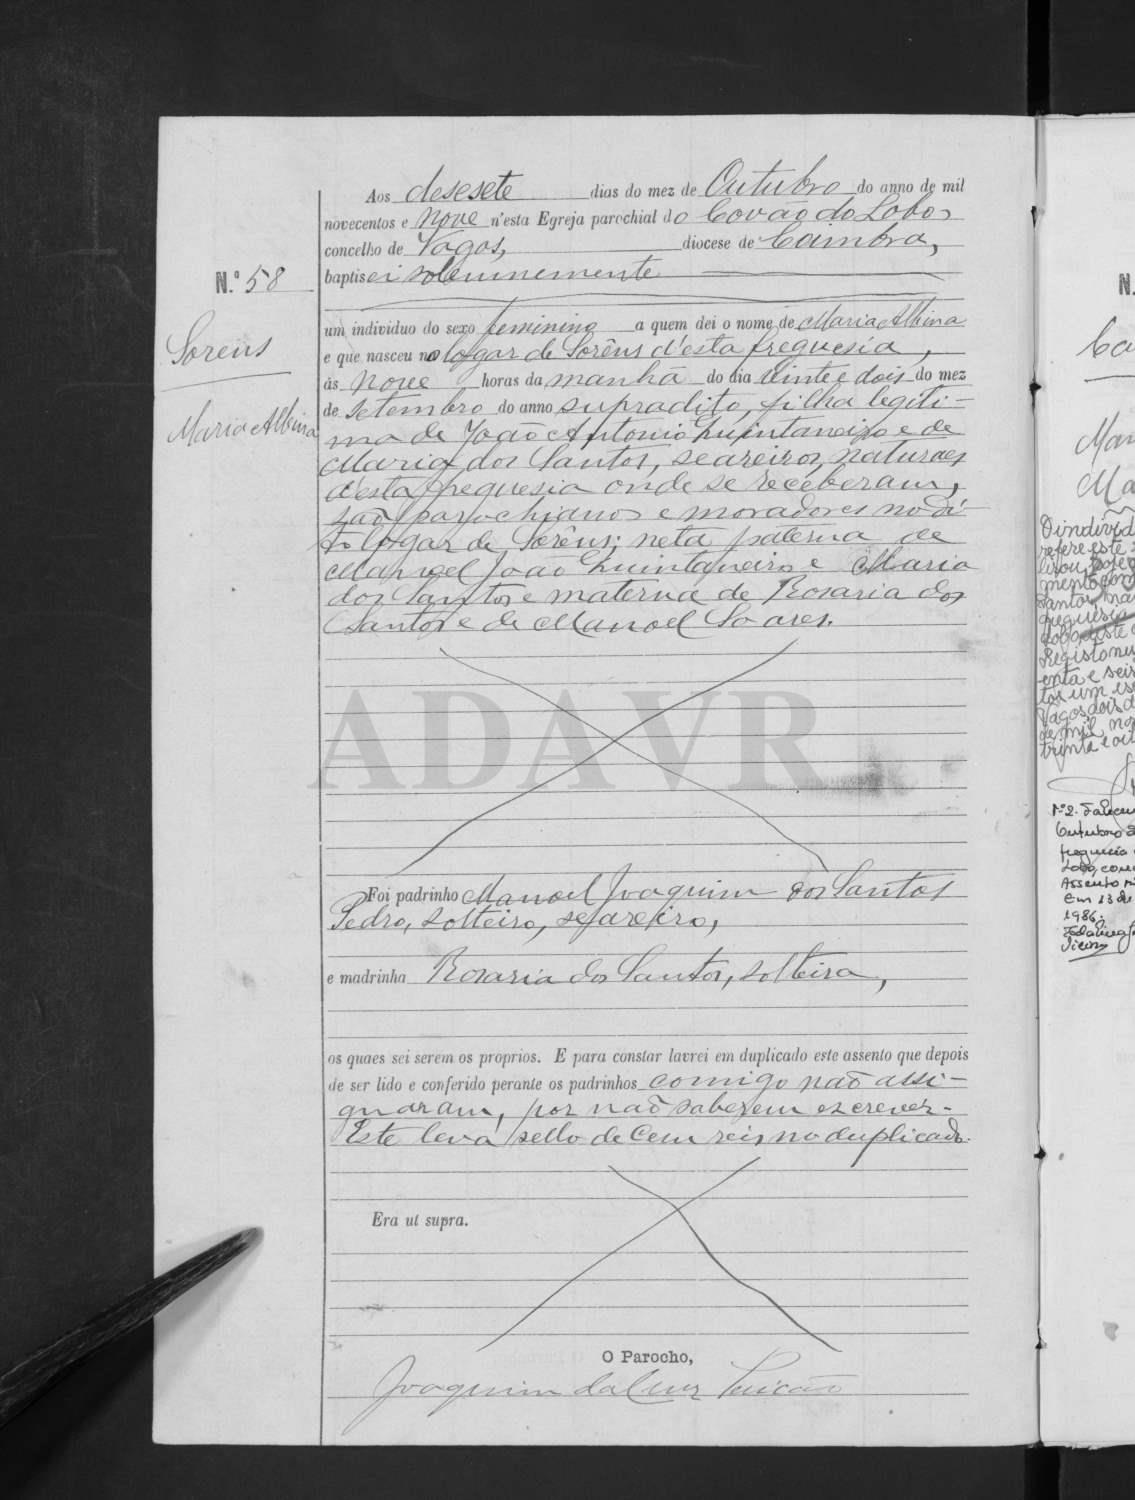 Aos desesete dias do mez de Outubro do anno de mil
novecentos e nove n'esta Egreja parochial do Covão do Lobo,
concelho de Vagos, diocese de Coimbra,
baptisei solemnemente
N.º 58
um individuo do sexo feminino a quem dei o nome de Maria Albina
Sorêns
e que nasceu no logar de Sorêns d'esta freguesia,
ás nove horas da manhã do dia vinte e dois do mez
de Setembro do anno supradito, filha legiti-
Maria Albina
ma de João Antonio Quintaneiro e de
Maria dos Santos, seareiros, naturaes
d'esta freguesia onde se receberam,
são parochianos e moradores no di-
to logar de Sorêns; neta paterna de
Manoel João Quintaneiro e Maria
dos Santos e materna de Rosaria dos
Santos e de Manoel Soares.
ADAVR
Foi padrinho Manoel Joaquim dos Santos
Pedro, solteiro, seareiro,
e madrinha Rosaria dos Santos, solteira,
os quaes sei serem os proprios. E para constar lavrei em duplicado este assento que depois
de ser lido e conferido perante os padrinhos comigo não assi-
gnaram, por não saberem escrever.
Este leva sello de cem reis no duplicado.
Era ut supra.
O Parocho,
Joaquim da Cruz
N.
Ca
Man
Ma
O individ
refere este
mento con
Santos, na
freguesia
Registo
enta e seis
Vagos, dois d
de mil no
trinta e oi
Nº 2. Falec
Outubro
freguesia
Lobo, conc
Assento
Em 13 de
1986.